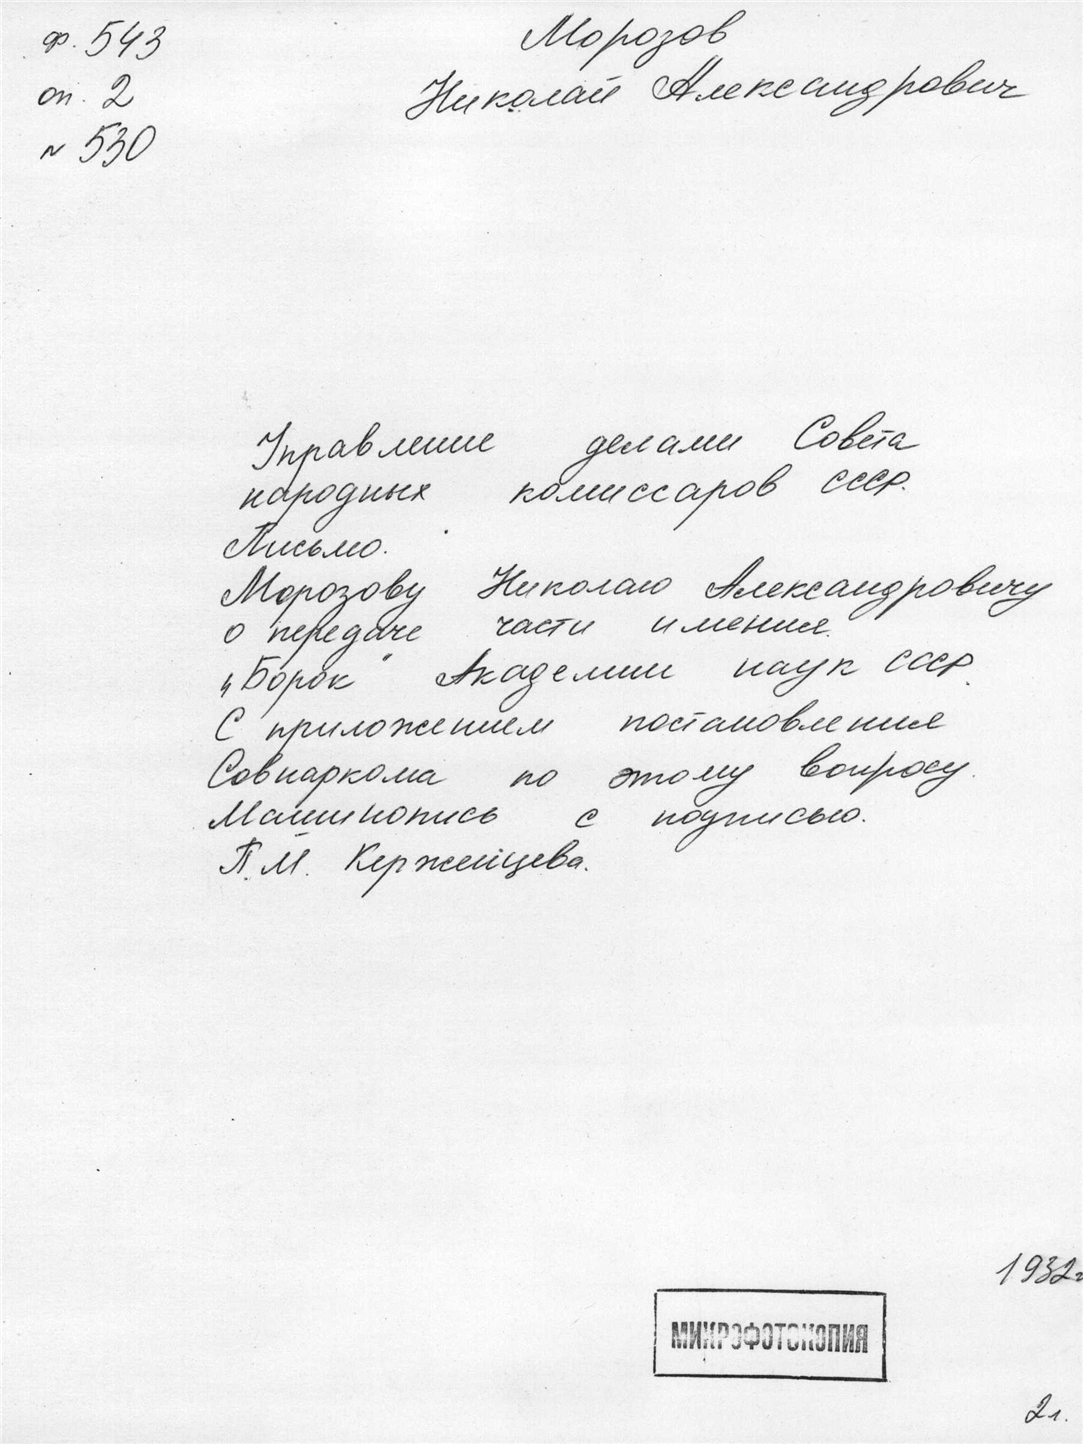 ф. 543
оп. 2
№ 530
Морозов
Николай Александрович
Управление делами Совета
народных комиссаров СССР.
Письмо.
Морозову Николаю Александровичу
о передаче части имения
„Борок" Академии наук СССР.
С приложением постановления
Совнаркома по этому вопросу.
Машинопись с подписью.
П.М. Керженцева.
1932г
МИКРОФОТОКОПИЯ
2л.